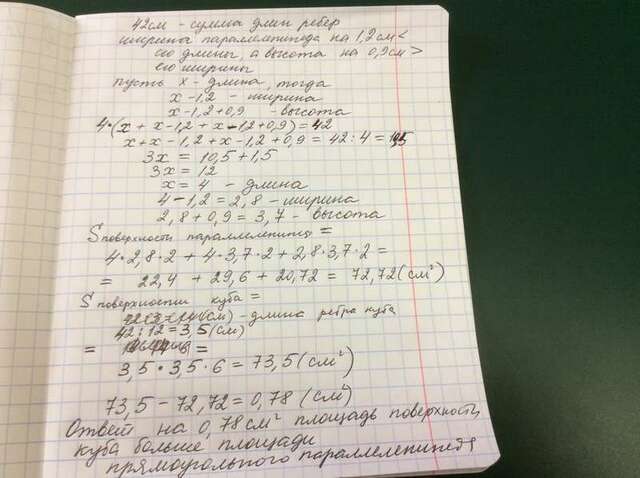 42см - сумма длин ребер
ширина параллелепипеда на 1,2см <
его длины, а высота на 0,9см >
его ширины
пусть x - длина, тогда
x-1,2 - ширина
x-1,2+0,9 - высота
4·(x + x-1,2 + x-1,2+0,9) = 42
x+x-1,2+x-1,2+0,9 = 42:4 = 10,5
3x = 10,5+1,5
3x = 12
x = 4 - длина
4-1,2 = 2,8 - ширина
2,8+0,9 = 3,7 - высота
S поверхности =
4·2,8·2 + 4·3,7·2 + 2,8·3,7·2 =
= 22,4 + 29,6 + 20,72 = 72,72 (см²)
S поверхности куба =
- длина ребра куба
42:12 = 3,5 (см)
= =
3,5·3,5·6 = 73,5 (см²)
73,5 - 72,72 = 0,78 (см²)
Ответ на 0,78 см² площадь поверхности
куба больше площади
прямоугольного